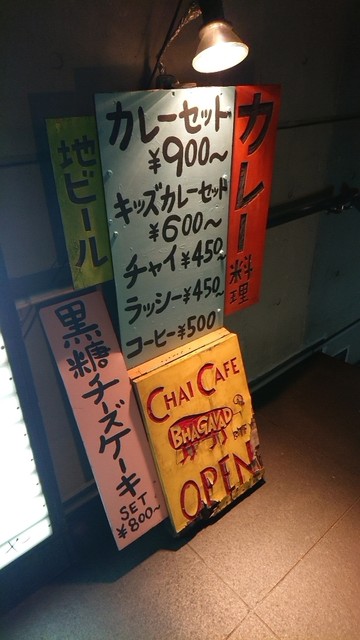 カレーセット
¥900〜
キッズカレーセット
¥600〜
チャイ¥450〜
ラッシー¥450〜
コーヒー¥500
カレー料理
地ビール
黒糖チーズケーキ
SET
¥800〜
CHAI CAFE
BHAGAVAD
OPEN